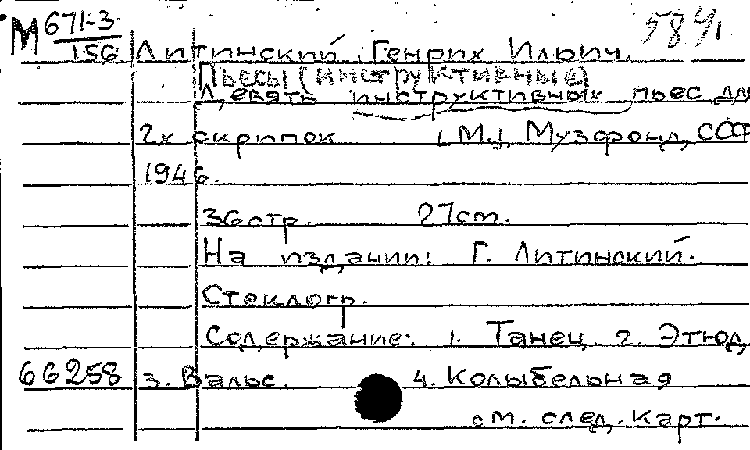 М 671-3 584/1
156 Литинский, Генрих Ильич.
Пьесы (инструктивные)
Девять инструктивных пьес для
2х скрипок [М.], Музфонд, СССР
1946.
36 стр. 27 см.
На издании: Г. Литинский.
Стеклогр.
Содержание: 1. Танец 2. Этюд,
66258 3. Вальс. 4. Колыбельная
см. след. карт.